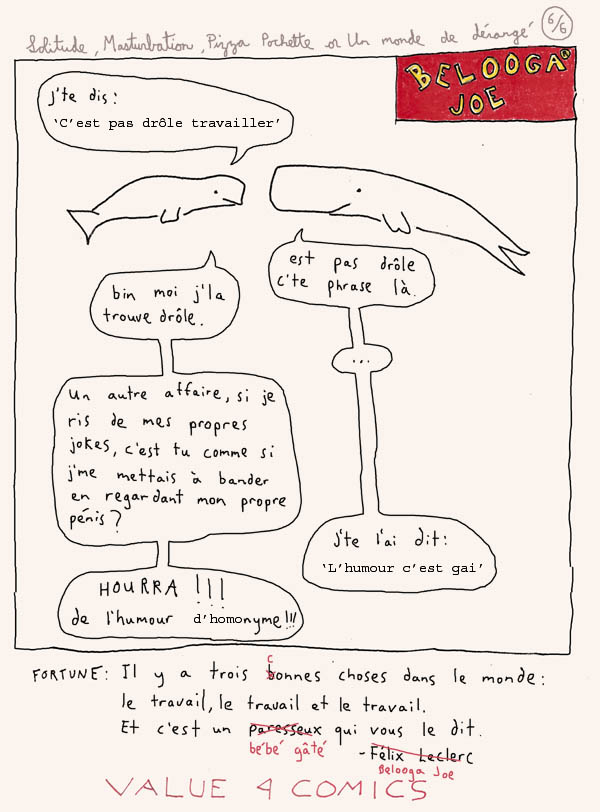 Solitude, Masturbation, Pizza Pochette or Un monde de dérangé
6/6
BELOOGA®
JOE
j'te dis:
'C'est pas drôle travailler'
est pas drôle
c'te phrase là.
bin moi j'la
trouve drôle.
...
Un autre affaire, si je
ris de mes propres
jokes, c'est tu comme si
j'me mettais à bander
en regardant mon propre
pénis?
j'te l'ai dit:
'L'humour c'est gai'
HOURRA !!!
de l'humour d'homonyme!!!
FORTUNE: Il y a trois bonnes choses dans le monde:
c
le travail, le travail et le travail.
Et c'est un paresseux qui vous le dit.
bébé gâté
-Félix Leclerc
Belooga Joe
VALUE 4 COMICS